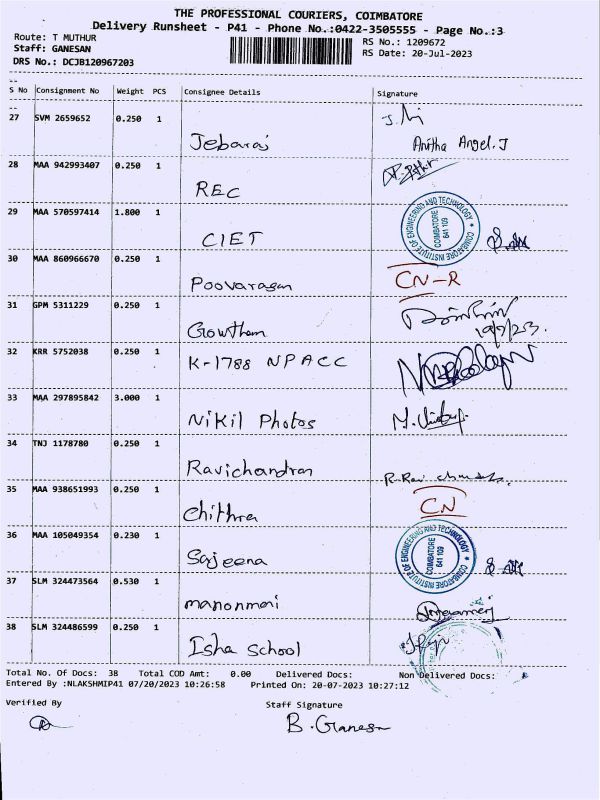 THE PROFESSIONAL COURIERS, COIMBATORE
Delivery Runsheet - P41 - Phone No.:0422-3505555 - Page No.:3
Route: T MUTHUR
RS No.: 1209672
Staff: GANESAN
RS Date: 20-Jul-2023
DRS No.: DCJB120967203
S No Consignment No Weight PCS Consignee Details Signature
27 SVM 2659652 0.250 1
Jebaraj Anitha Angel.J
28 MAA 942993407 0.250 1
REC
29 MAA 570597414 1.800 1
CIET
COIMBATORE INSTITUTE OF ENGINEERING AND TECHNOLOGY
COIMBATORE 641 109
30 MAA 860966670 0.250 1
Poovaragan CN-R
31 GPM 5311229 0.250 1
Gowtham
32 KRR 5752038 0.250 1
K-1788 NPACC
33 MAA 297895842 3.000 1
Nikil Photos
34 TNJ 1178780 0.250 1
Ravichandran
35 MAA 938651993 0.250 1
Chithra CN
36 MAA 105049354 0.230 1
Sajeena
COIMBATORE INSTITUTE OF ENGINEERING AND TECHNOLOGY
COIMBATORE 641 109
37 SLM 324473564 0.530 1
manonmai
38 SLM 324486599 0.250 1
Isha school
Total No. Of Docs: 38 Total COD Amt: 0.00 Delivered Docs: Non Delivered Docs:
Entered By :NLAKSHMIP41 07/20/2023 10:26:58 Printed On: 20-07-2023 10:27:12
Verified By Staff Signature
B. Ganesan